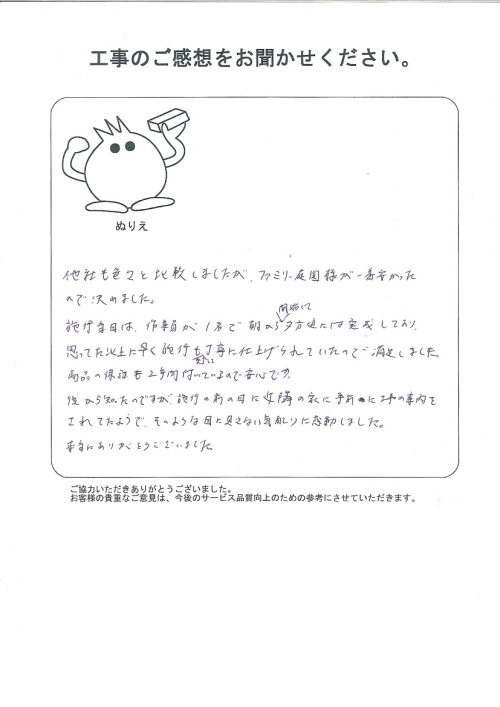 工事のご感想をお聞かせください。
ぬりえ
他社も色々と比較しましたが、ファミリー庭園様が一番安かった
ので決めました。
施行当日は、作業員が1名で朝から開始して夕方迄には完成しており、
思ってた以上に早く施行も丁寧に仕上げられていたので満足しました。
商品の保証も2年間付いているので安心です。
後から知たのですが、施行の前の日に近隣の家に事前に工事の案内を
されてたようで、そのような目に見えない気配りに感動しました。
本当にありがとうございました。
ご協力いただきありがとうございました。
お客様の貴重なご意見は、今後のサービス品質向上のための参考にさせていただきます。